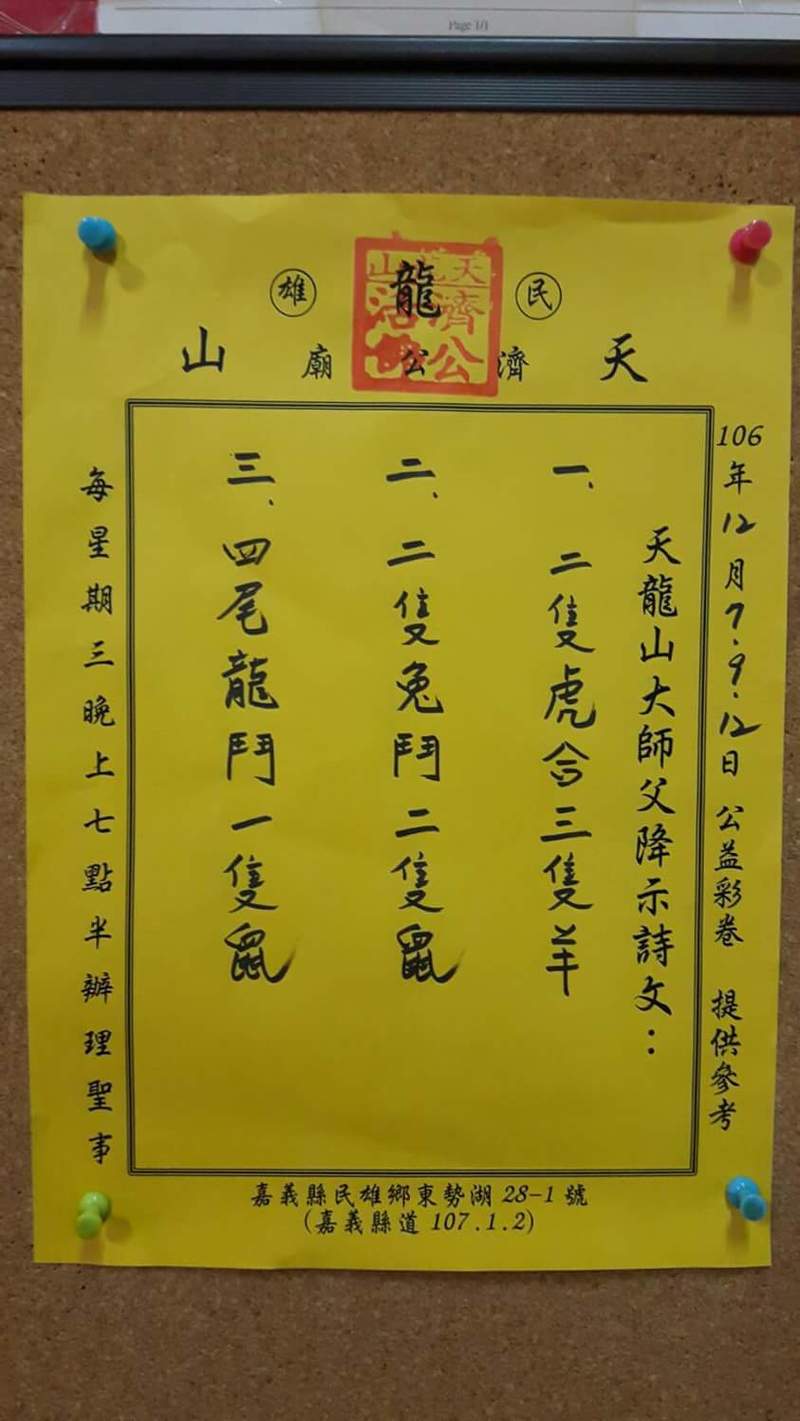 Page 1/1
民 雄
天龍山
濟公廟
天龍山
濟公
106年12月7.9.12日 公益彩卷 提供參考
天龍山大師父降示詩文：
一、二隻虎合三隻羊
二、二隻兔鬥二隻鼠
三、四尾龍鬥一隻鼠
每星期三晚上七點半辦理聖事
嘉義縣民雄鄉東勢湖 28-1 號
(嘉義縣道 107.1.2)